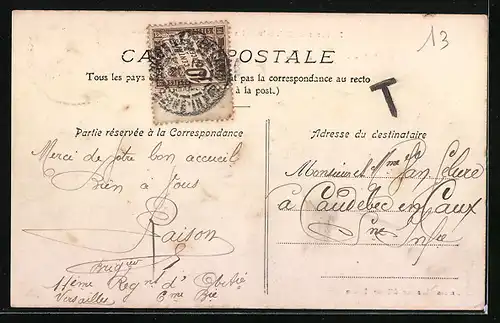 13
CARTE POSTALE
Tous les pays pas la correspondance au recto
à la poste.)
T
Partie réservée à la Correspondance
Adresse du destinataire
Merci de votre bon accueil
Bien à Vous
Raison
Brigr
11ème Regnt d'Artie
Versailles 6me Bie
Monsieur et Mme Jan
à Caudebec en Caux
Sne Infre